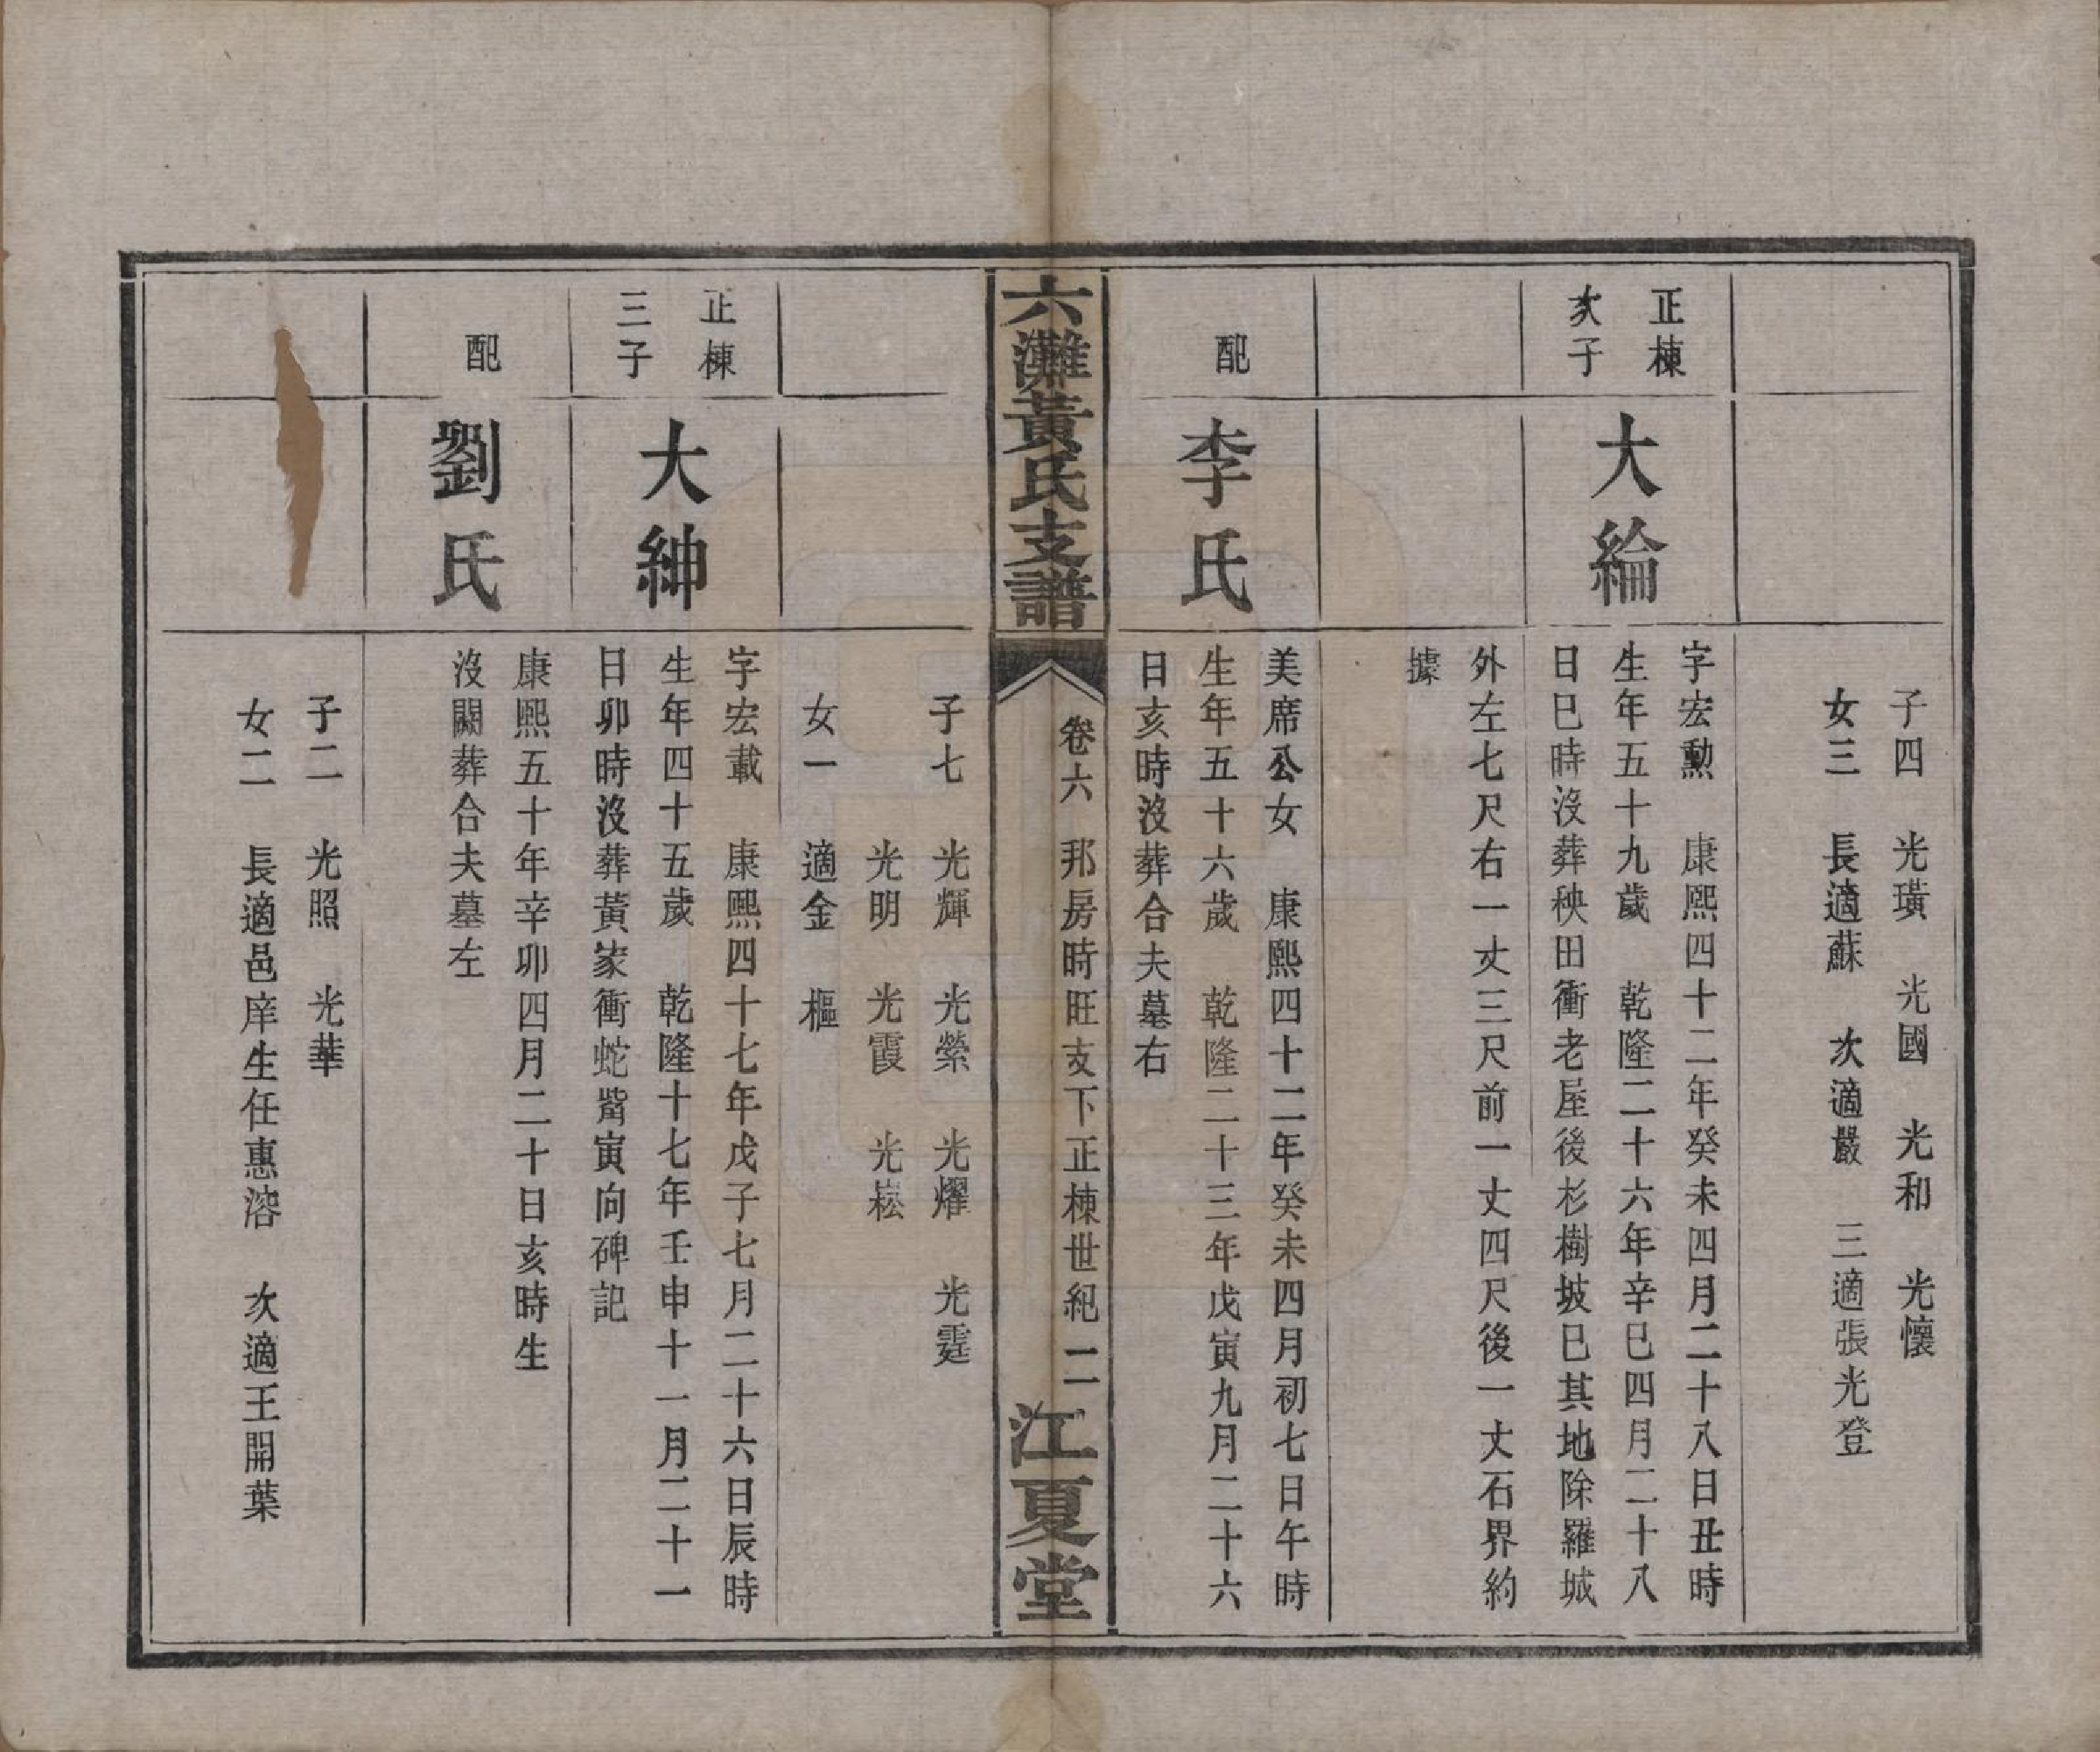 子四　光璜　光國　光和　光懷
女三　長適蘇　次適嚴　三適張光登
正棟
次子
大綸
字宏勳　康熙四十二年癸未四月二十八日丑時
生年五十九歲　乾隆二十六年辛巳四月二十八
日巳時沒葬秧田衝老屋後杉樹坡巳其地除羅城
外左七尺右一丈三尺前一丈四尺後一丈石界約
據
配
李氏
美席公女　康熙四十二年癸未四月初七日午時
生年五十六歲　乾隆二十三年戊寅九月二十六
日亥時沒葬合夫墓右
六灘黃氏支譜
卷六　邦房時旺支下正棟世紀　二
江夏堂
子七　光輝　光縈　光燿　光霆
光明　光霞　光崧
女一　適金　樞
正棟
三子
大紳
字宏載　康熙四十七年戊子七月二十六日辰時
生年四十五歲　乾隆十七年壬申十一月二十一
日卯時沒葬黃家衝蛇觜寅向碑記
配
劉氏
康熙五十年辛卯四月二十日亥時生
沒闕葬合夫墓左
子二　光照　光華
女二　長適邑庠生任惠溶　次適王開葉